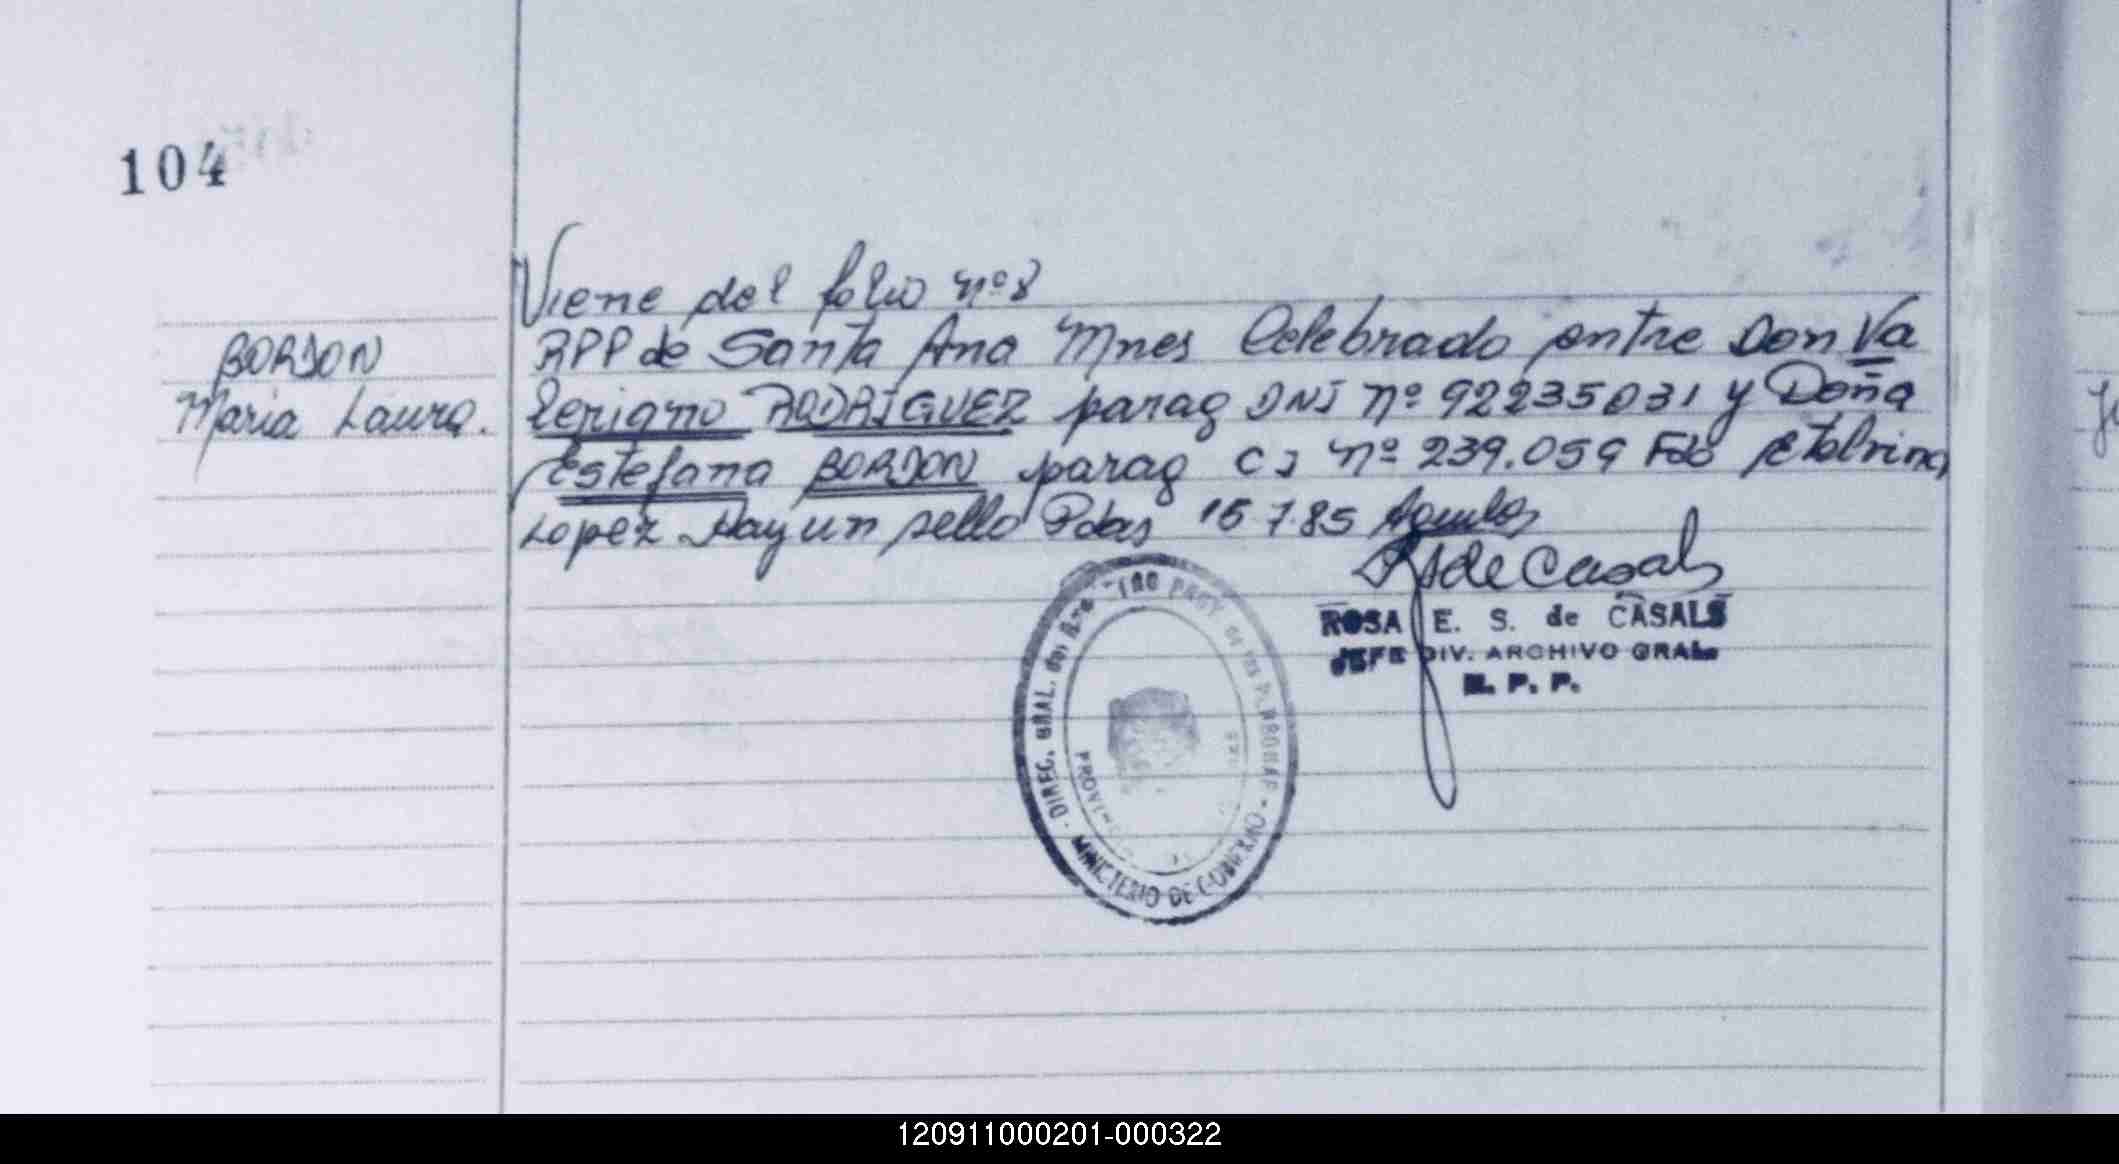 104
Viene del folio nº 8
BORDON
Maria Laura.
RPP de Santa Ana Mnes Celebrado entre Don Va
leriano RODRIGUEZ parag DNI nº 92235031 y Doña
Estefana BORDON parag CI nº 239.059 Fdo Etelvina
Lopez Hay un sello Pdas 15.7.85
R S de Casals
ROSA E. S. de CASALS
JEFE DIV. ARCHIVO GRAL.
R. P. P.
DIREC. GRAL. del
DE LAS PERSONAS
MINISTERIO DE GOBIERNO
120911000201-000322